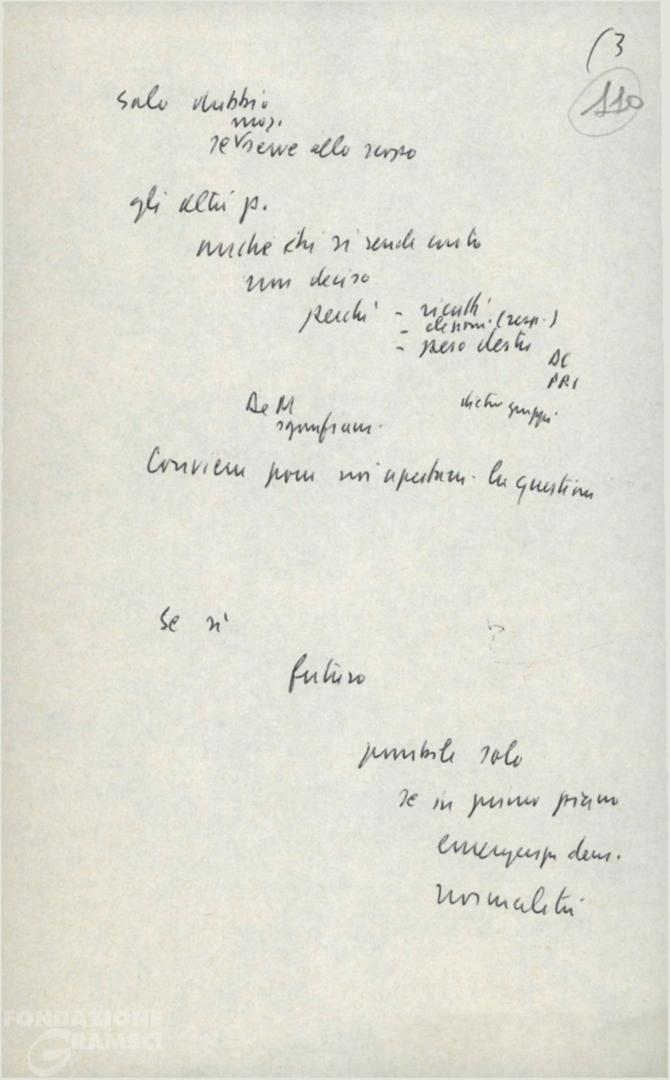 (3
110
solo dubbio
moz.
se serve allo scopo
gli altri p.
anche chi si rende conto
non deciso
perché - ricatti
- elezioni (resp.)
- peso destre
DC
PRI
De M
sgonfiam.
Conviene porre noi apertam. la questione
Se sì
futuro
possibile solo
se in primo piano
emergenza dem.
normalità
FONDAZIONE
GRAMSCI